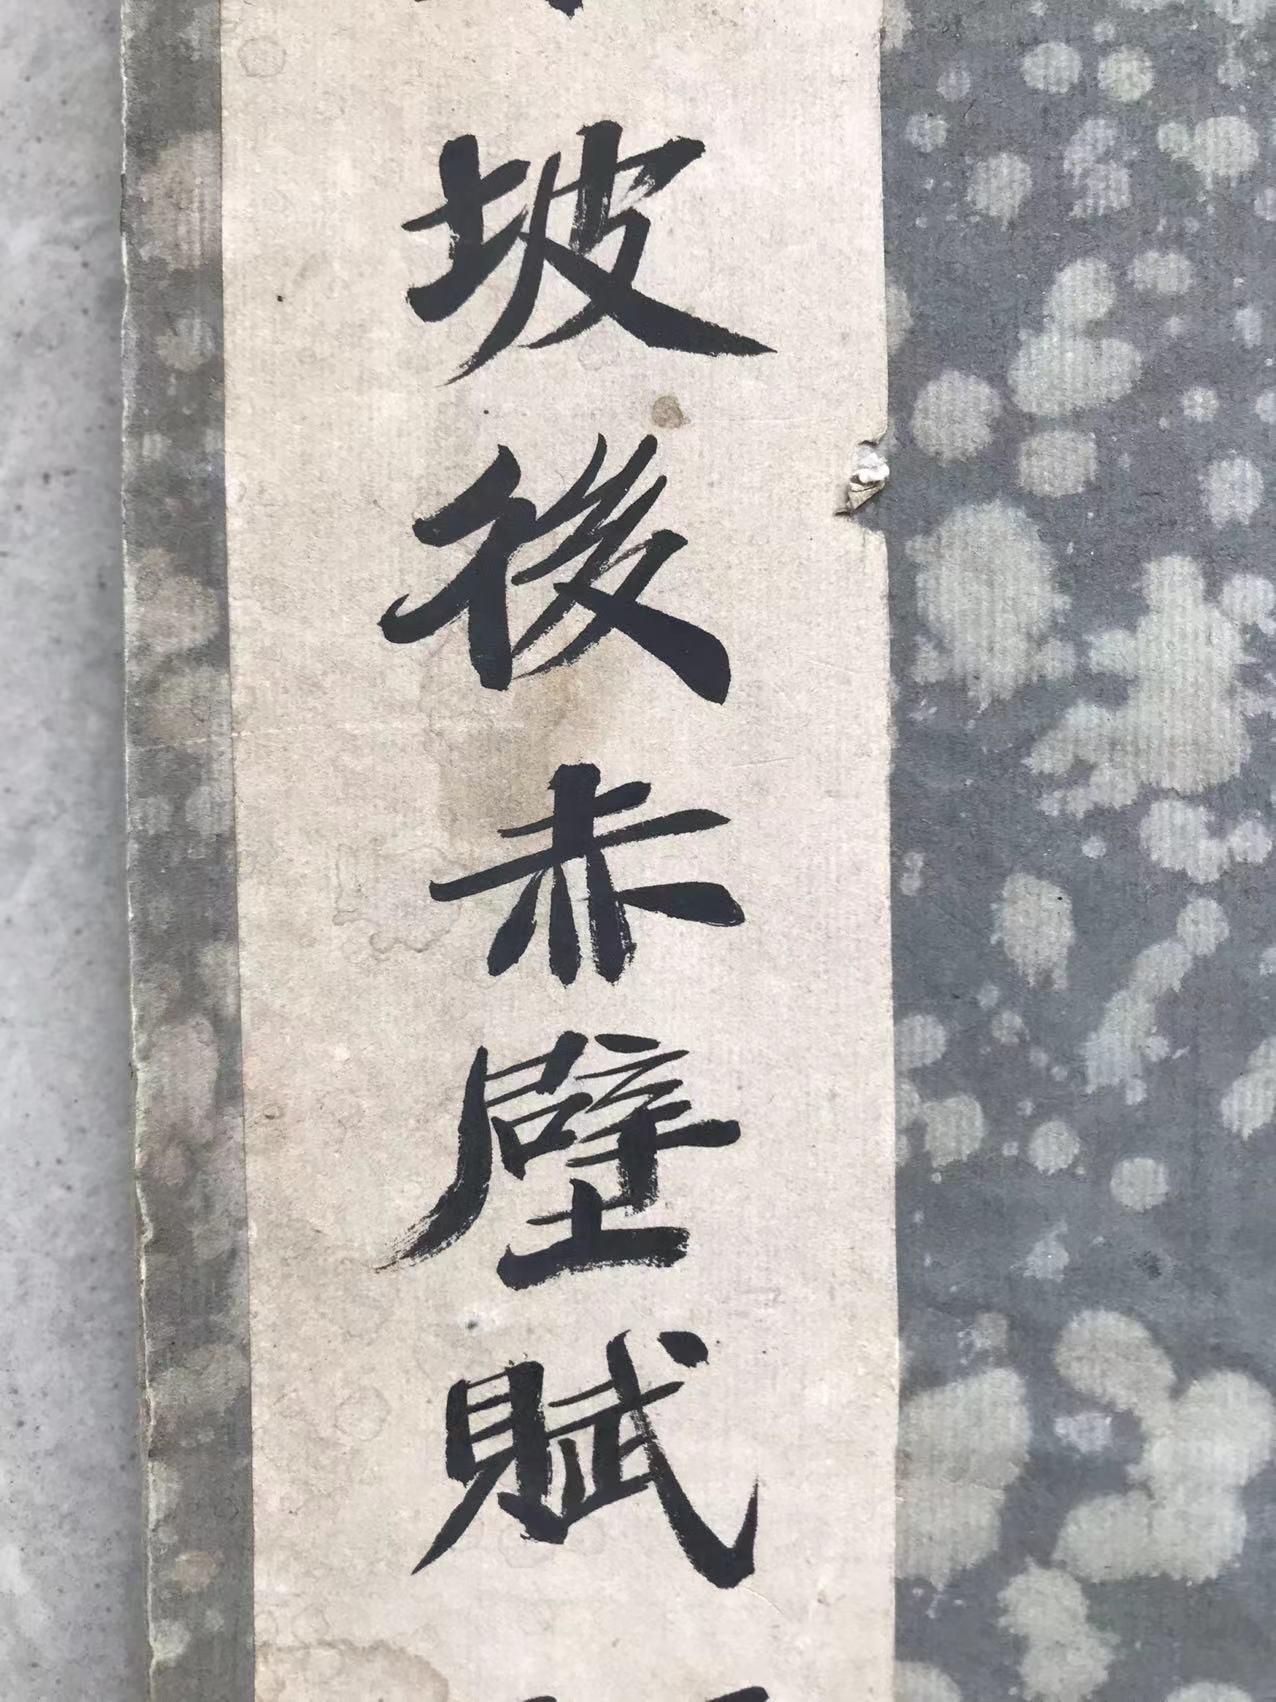 坡後赤壁賦